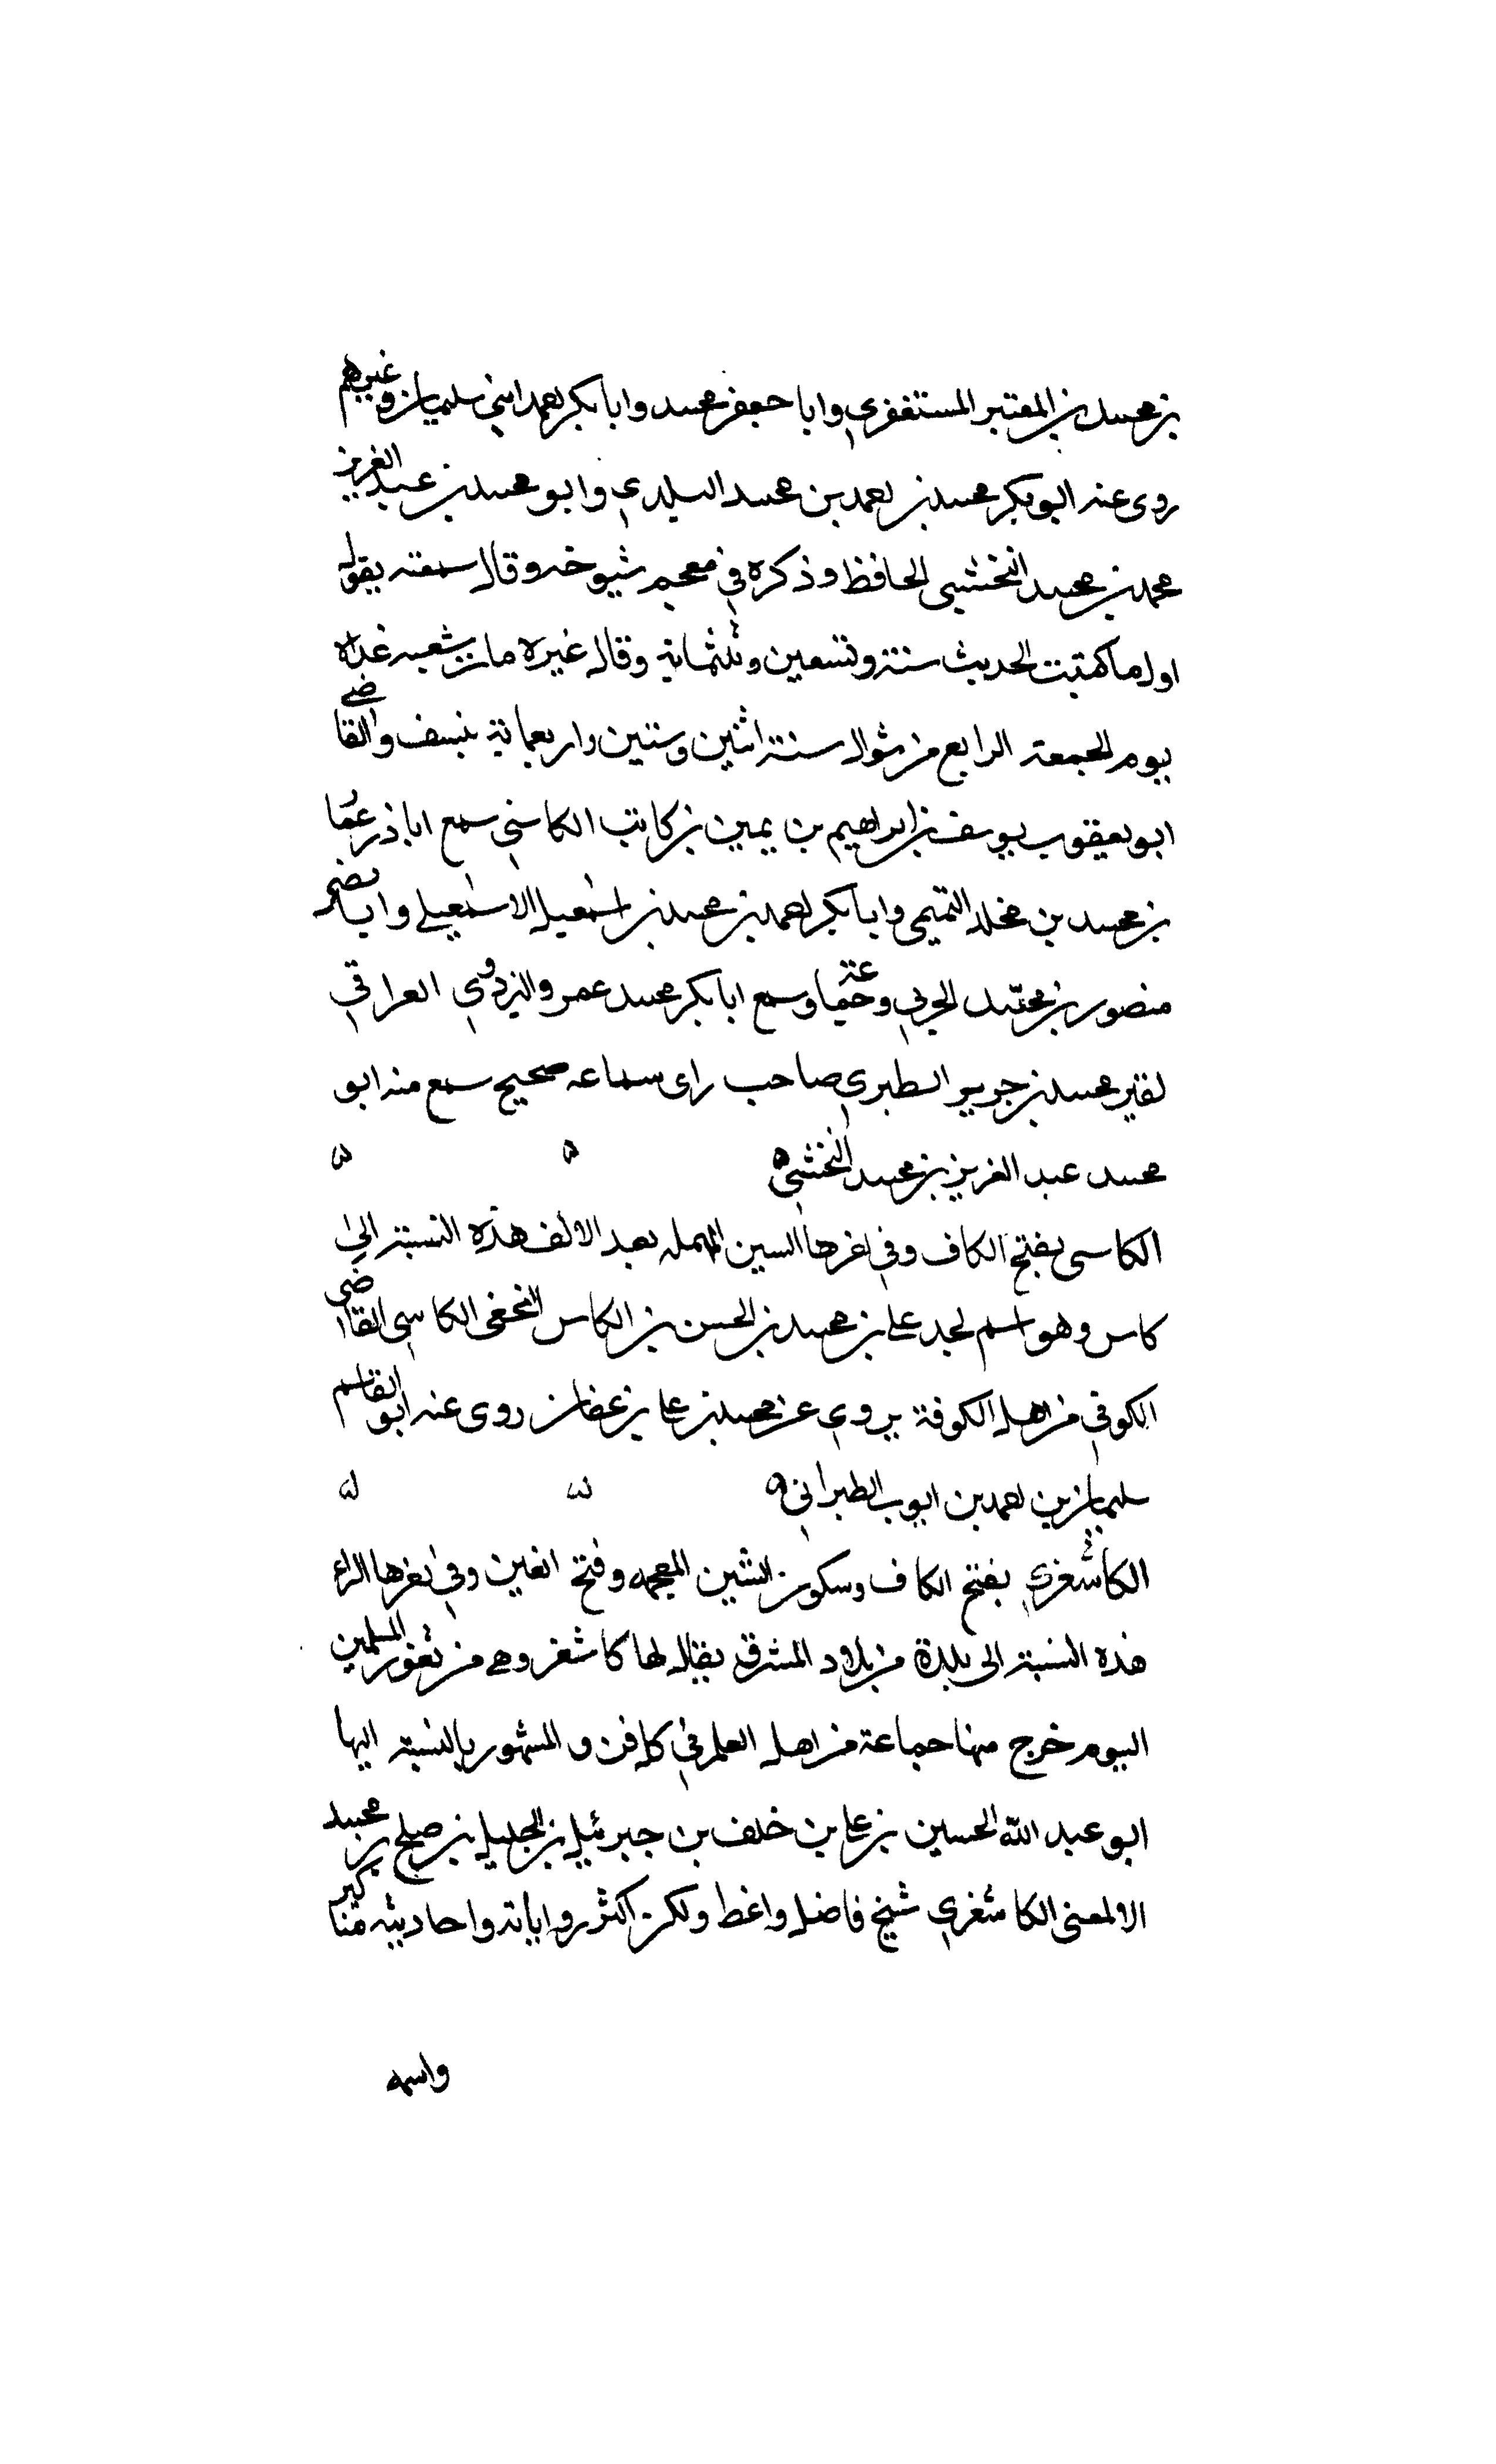 بن محمد بن المعتبر المستغفري وابا جعفر محمد وابا بكر احمد ابني سليمان وغيرهم
روى عنه ابو بكر محمد بن احمد بن محمد البلدي وابو محمد بن عبد العزيز
محمد بن محمد النخشبي الحافظ وذكره في معجم شيوخه وقال سمعته يقول
اول ما كتبت الحديث سنة وتسعين وثلثمائة وقال غيره مات شعبه غداه
يوم الجمعة الرابع من شوال سنة اثنين وستين واربعمائة بنسف والقاضي
ابو يعقوب يوسف بن ابراهيم بن يمين بن كاتب الكاسني سمع اباذر عمار
بن محمد بن مخلد التميمي وابا بكر احمد بن محمد بن اسمعيل الاسمعيلي وابا نصر
منصور بن محمد الحربي وسمع ابا بكر محمد عمرو البزدوي العراقي
محمد بن جرير الطبري صاحب راى سماعه صحيح سمع منه ابو
محمد عبد العزيز بن محمد النخشبي ه ه ه
الكاسى بفتح الكاف وفي اخرها السين المهمله بعد الالف هذه النسبة الى
كاس وهو اسم لجد على بن محمد بن الحسن بن الكاس النخعى الكاسي القاضى
الكوفي من اهل الكوفة يروي عن محمد بن على بن عفان روى عنه ابو القاسم
سليمان بن احمد بن ايوب الطبراني ه ه ه
الكاشغري بفتح الكاف وسكون الشين المعجمه وفتح الغين وفي اخرها الراء
هذه النسبة الى بلدة من بلاد المشرق يقال لها كاشغر وهى من ثغور المسلمين
اليوم خرج منها جماعة من اهل العلم في كل فن والمشهور بالنسبة اليها
ابو عبد الله الحسين بن على بن خلف بن جبرئيل بن الجليل بن صلح بن محمد
الالمعى الكاشغري شيخ فاضل واعظ ولكن اكثر رواياته واحاديثه مناكير
واسمه